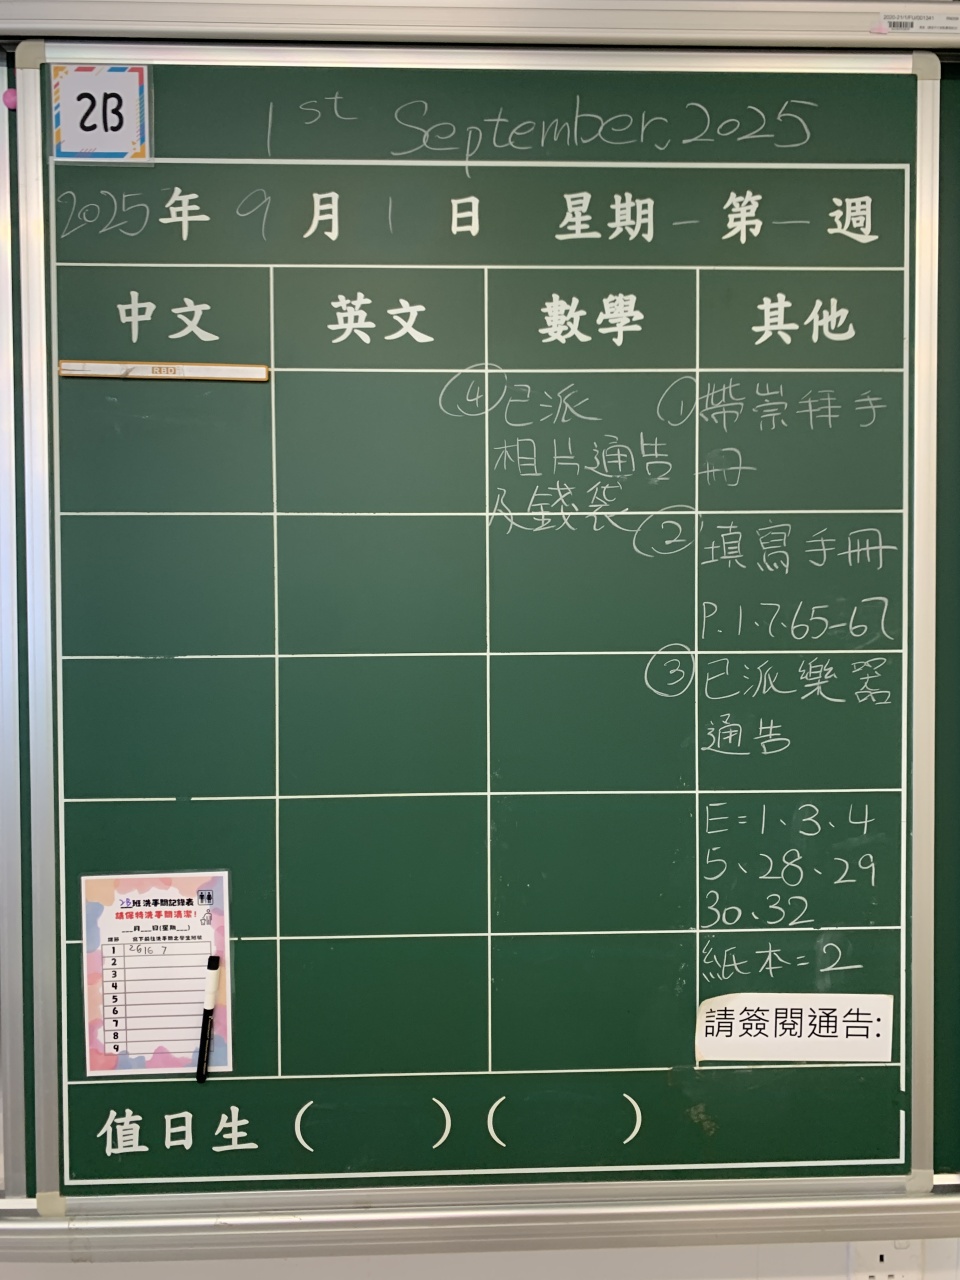 2B
1st September, 2025
2025年 9月 1日 星期一 第一週
中文 英文 數學 其他
RBD
④已派
相片通告
及錢袋
①帶崇拜手
冊
②填寫手冊
P.1、7、65-67
③已派樂器
通告
E=1、3、4
5、28、29
30、32
紙本=2
請簽閱通告:
2B班洗手間記錄表
請保持洗手間清潔!
___月___日(星期___)
1 26 16 7
2
3
4
5
6
7
8
9
值日生 ( ) ( )